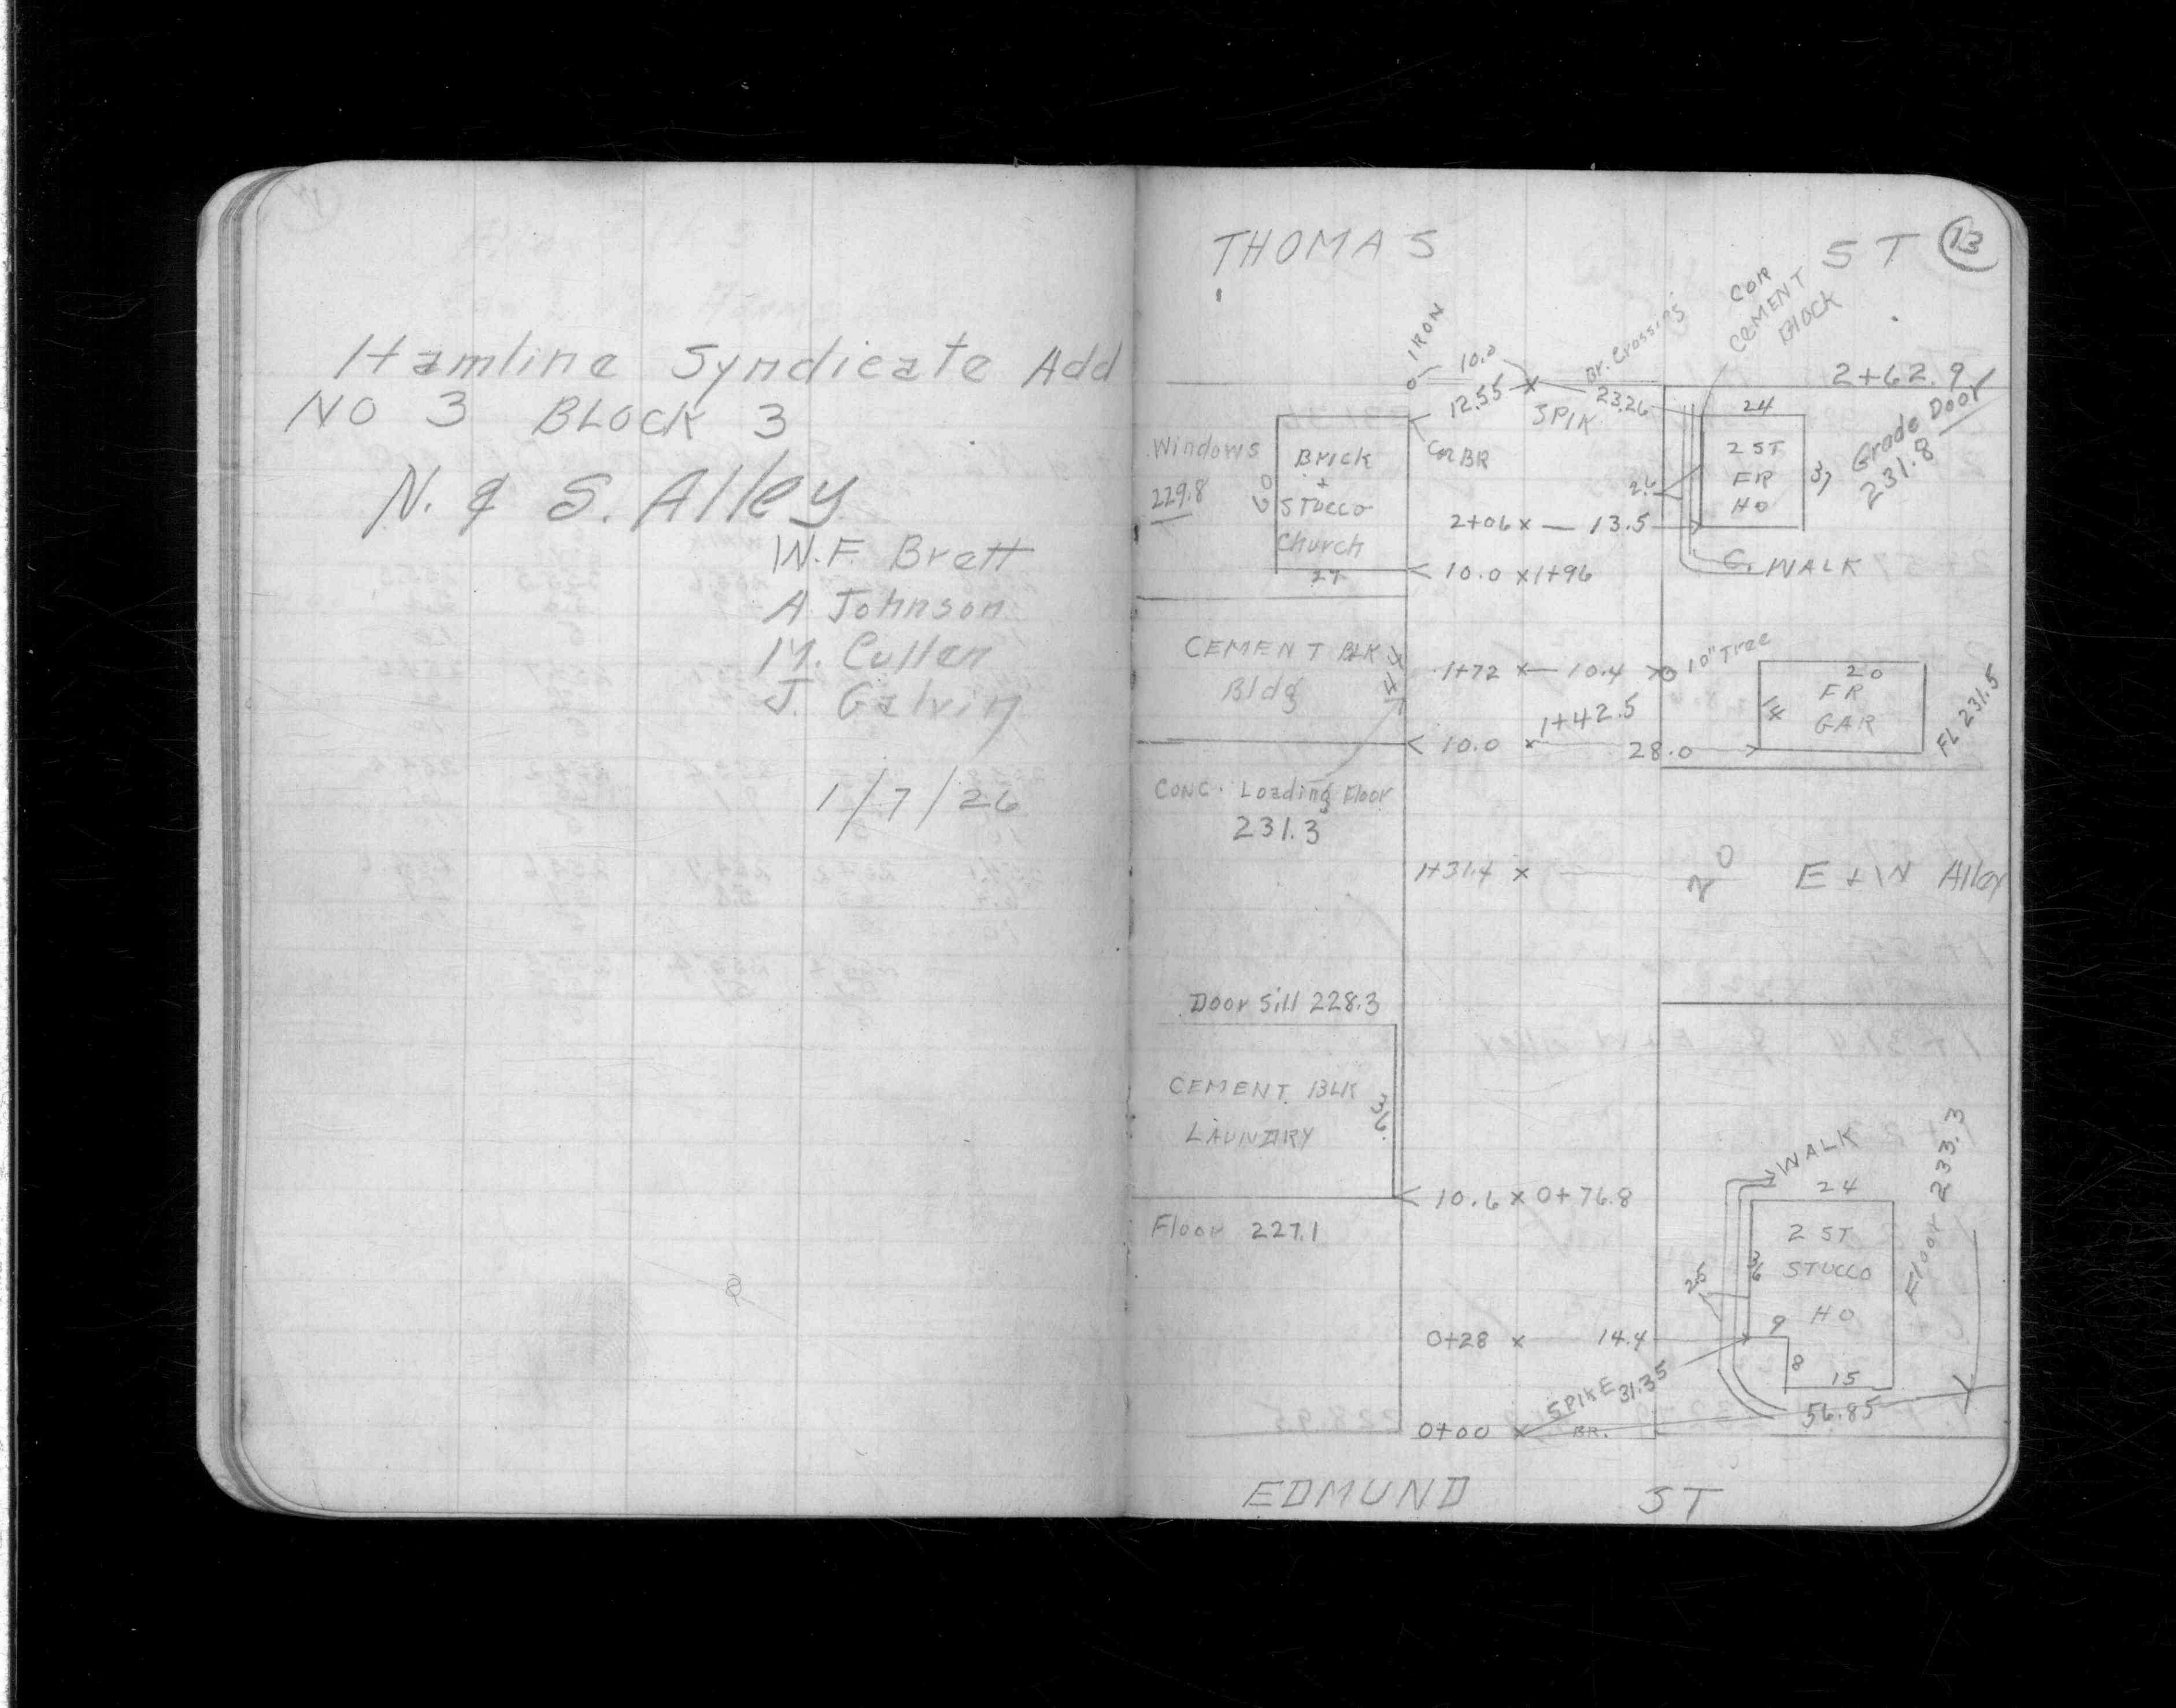 Hamline Syndicate Add
NO 3 BLOCK 3
N. & S. Alley
W.F. Brett
A Johnson
M. Cullen
J. Galvin
1/7/26
THOMAS ST
13
COR
CEMENT
BLOCK
IRON
10.0
Br. Crossings
2+62.9
12.55
SPIK
23.26
24
Windows
229.8
60
Brick
+
STUCCO
Church
27
Cor BR
2 ST
FR
HO
37
Grade Door
231.8
2.6
2+06 x — 13.5
10.0 x 1+96
C. WALK
CEMENT BLK
Bldg
1+72 x — 10.4
10" Tree
20
FR
GAR
14
FL 231.5
1+42.5
10.0 x 28.0
CONC. Loading Floor
231.3
1+31.4 x
20
E + W Alley
Door Sill 228.3
CEMENT BLK
LAUNDRY
36.
10.6 x 0+76.8
Floor 227.1
WALK
24
2 ST
STUCCO
HO
36
2.5
9
8
15
Floor 233.3
0+28 x 14.4
SPIKE 31.35
56.85
0+00 x BR.
EDMUND ST